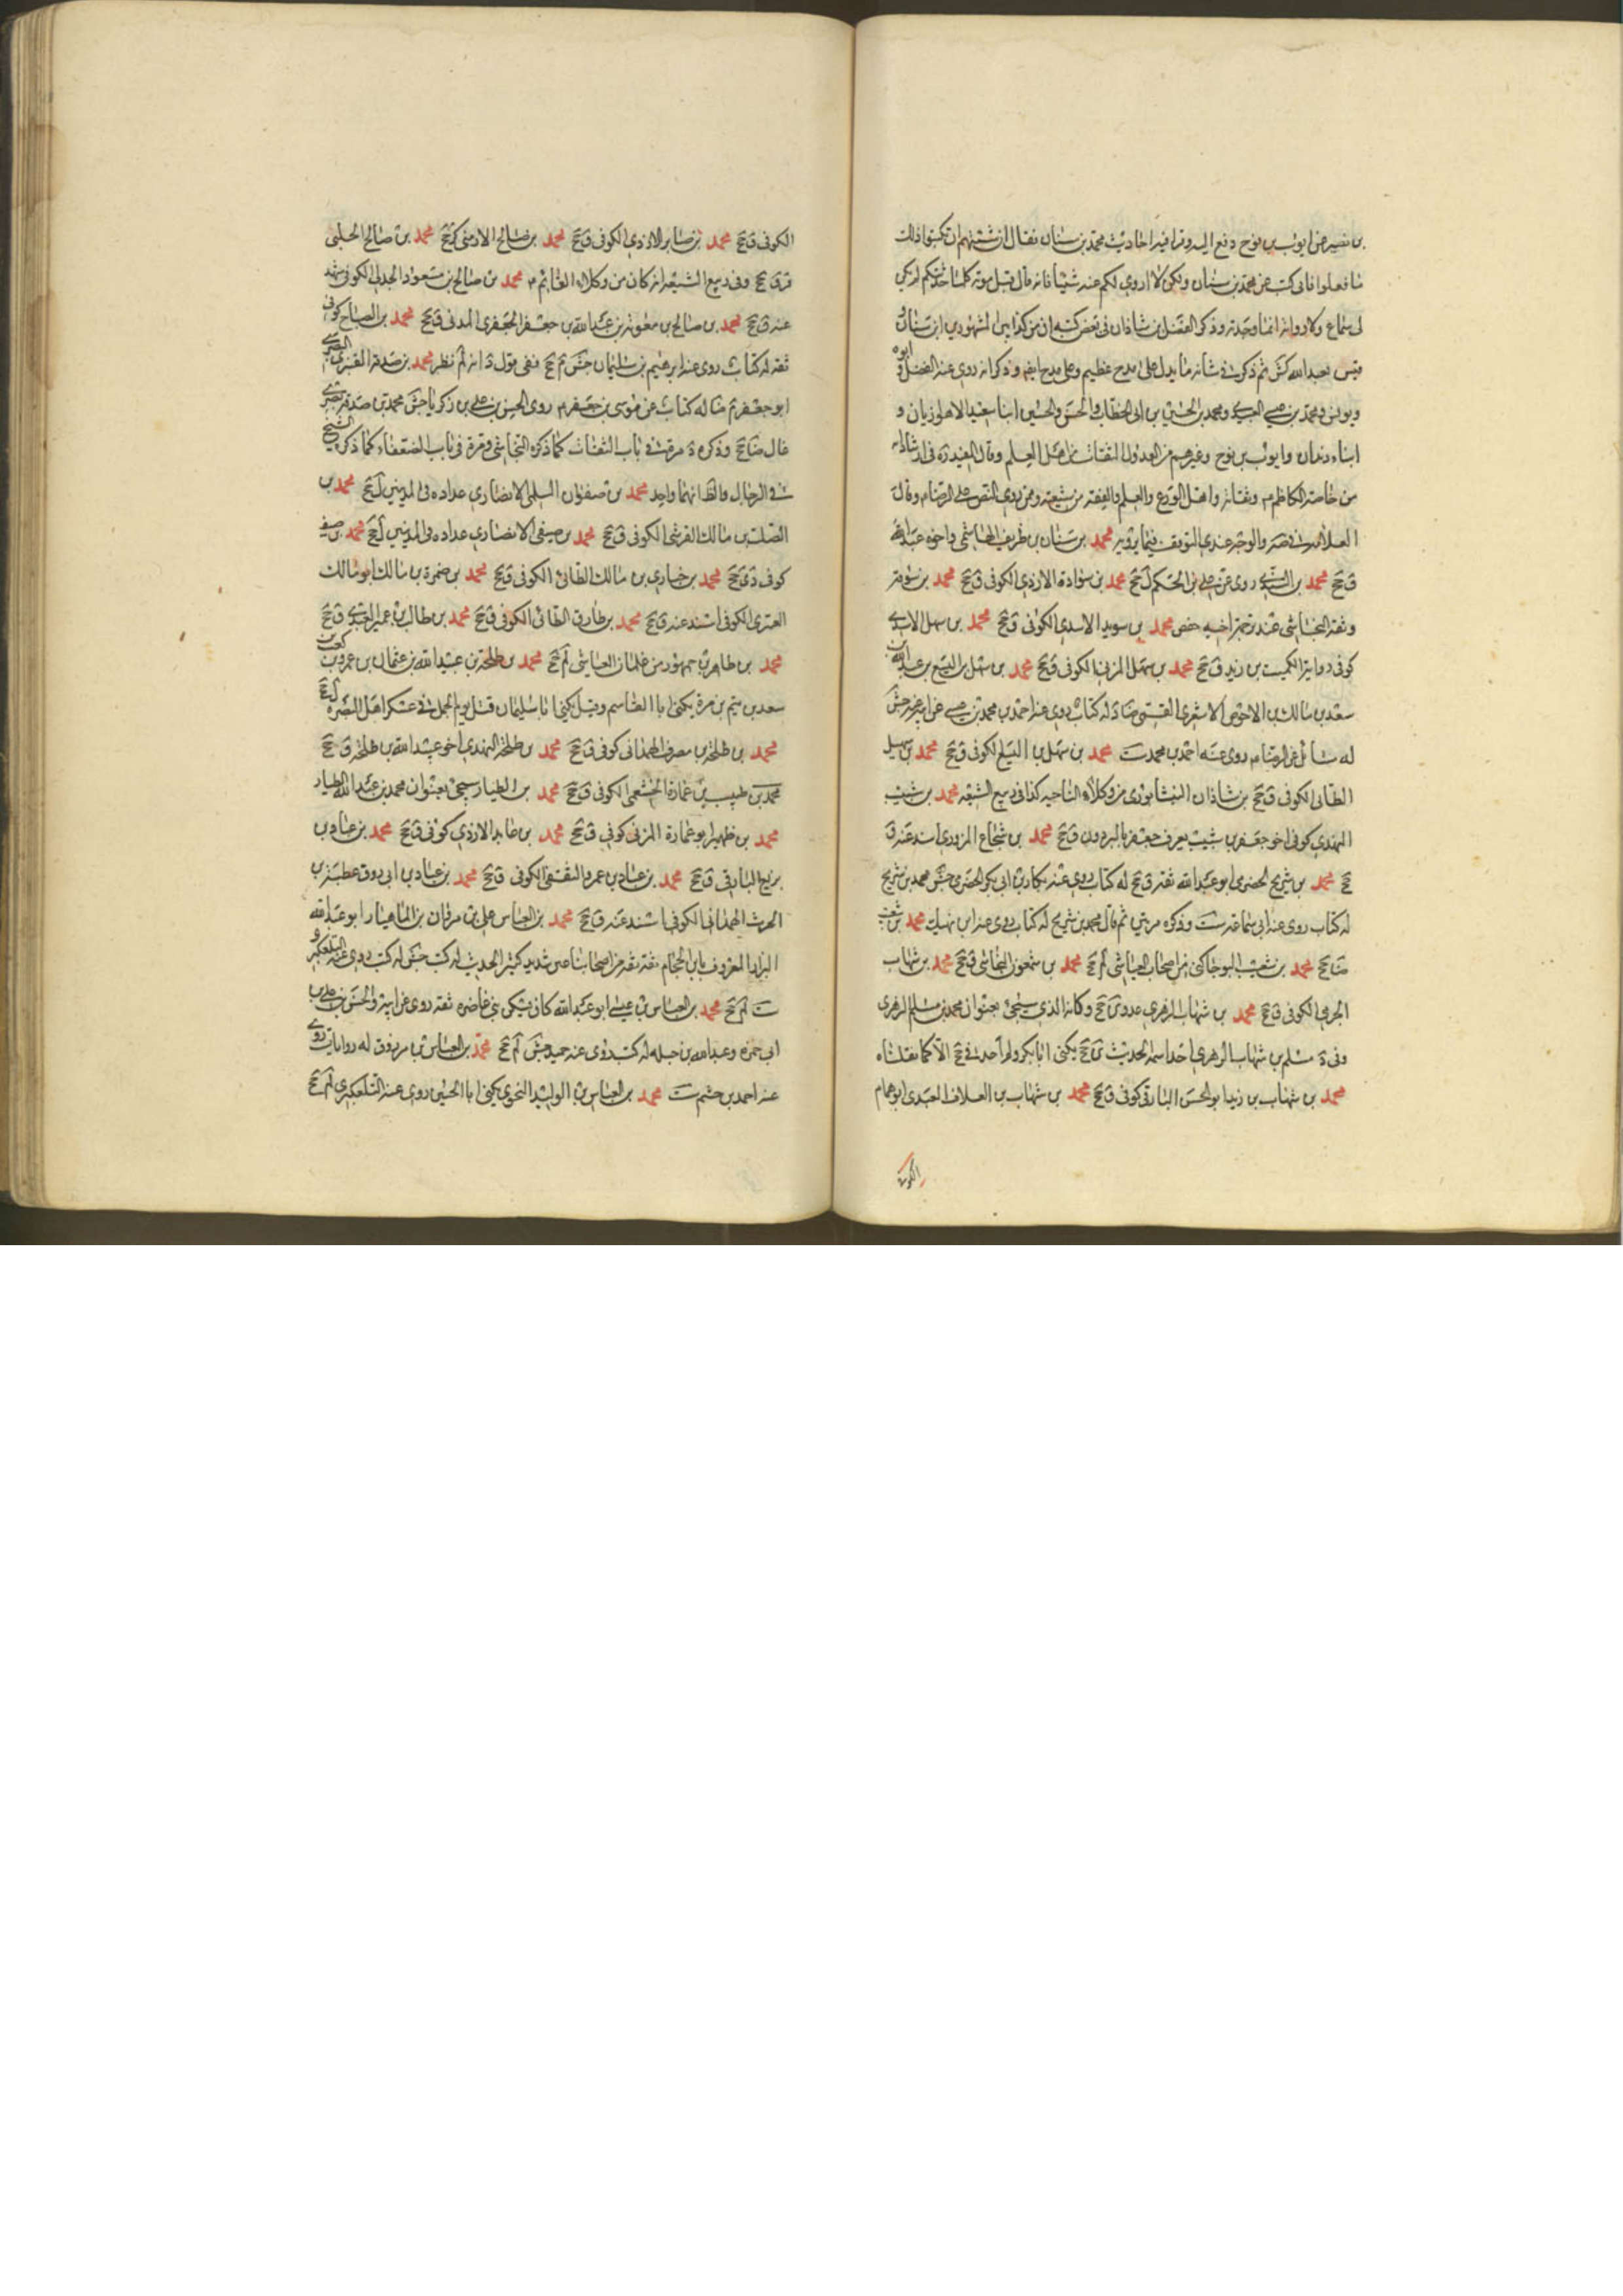 بن نصير عن ايوب بن نوح دفع اليه دفترا فيه احاديث محمد بن سنان فقال ان شئتم ان تكتبوا ذلك
فافعلوا فاني كتبت عن محمد بن سنان ولكن لا اروي لكم عنه شيئا فانه قال قبل موته كلما حدثتكم لم يكن
لي سماع ولا رواية انما وجدته وذكر الفضل بن شاذان في بعض كتبه ان من الكذابين المشهورين ابن سنان و
ليس بعبد الله كش ثم ذكر في شانه ما يدل على مدح عظيم وعلى مدح ايضا وذكر انه روى عنه الفضل وابوه
ويونس ومحمد بن عيسى العبيدي ومحمد بن الحسين بن ابي الخطاب والحسن والحسين ابنا سعيد الاهوازيان و
ابناء دندان وايوب بن نوح وغيرهم من العدول الثقات من اهل العلم وقال المفيد ره في ارشاده انه
من خاصة الكاظم م وثقاته واهل الورع والعلم والفقه من شيعته وممن روى النص على الرضا م وقال
العلامة في ضه والوجه عندي التوقف فيما يرويه محمد بن سنان بن طريف الهاشمي واخوه عبد الله
ق جخ محمد بن السندي روى عن علي بن الحكم لم جخ محمد بن سوادة الازدي الكوفي ق جخ محمد بن سوقة
وثقه النجاشي عند ترجمة اخيه حفص محمد بن سويد الاسدي الكوفي ق جخ محمد بن سهل الاسدي
كوفي رواية الكميت بن زيد ق جخ محمد بن سهل المزني الكوفي ق جخ محمد بن سهل بن اليسع بن عبد الله بن
سعد بن مالك بن الاحوص الاشعري القمي ضا د له كتاب روى عنه احمد بن محمد بن عيسى عن ابيه عنه جش
له مسائل عن الرضا م روى عنه احمد بن محمد ست محمد بن سهل بن اليسع الكوفي ق جخ محمد بن سهيل
الطائي الكوفي ق جخ بن شاذان النيشابوري من وكلاء الناحية كذا في ربيع الشيعة محمد بن شبيب
النهدي كوفي اخو جعفر بن شبيب يعرف جعفر بالبرذون ق جخ محمد بن شجاع المروزي اسند عنه ق
جخ محمد بن شريح الحضرمي ابو عبد الله ثقة ق جخ له كتاب روى عنه بكار بن ابي بكر الحضرمي جش محمد بن شريح
له كتاب روى عنه ابن سماعة ست وذكره مرتين ثم قال محمد بن شريح له كتاب روى عنه ابن نهيك محمد بن شعيب
ضا جخ محمد بن شعيب البوجاكني من اصحاب العياشي لم جخ محمد بن شمعون النجاشي ق جخ محمد بن شهاب
الجرمي الكوفي ق جخ محمد بن شهاب الزهري عدو ين جخ وكانه الذي سيجئ بعنوان محمد بن مسلم الزهري
وفي د مسلم بن شهاب الزهري احد ائمة الحديث ين جخ يكنى ابا بكر ولم أجده في جخ الا كما نقلناه
محمد بن شهاب بن زيد ابو الحسن البارقي كوفي ق جخ محمد بن شهاب بن العلاف العبدي ابو همام
الكوفي
الكوفي ق جخ محمد بن صابر الازدي الكوفي ق جخ محمد بن صالح الارمني كر جخ محمد بن صالح الحلبي
قر ق جخ وفي ربيع الشيعة انه كان من وكلاء القائم م محمد بن صالح بن مسعود الجدلي الكوفي اسند
عنه ق جخ محمد بن صالح بن معوية بن عبد الله بن جعفر الجعفري المدني ق جخ محمد بن الصباح كوفي
ثقة له كتاب روى عنه ابرهيم بن سليمان جش لم جخ ففي قول د انه لم نظر محمد بن صدقة العنبري البصري
ابو جعفر م ضا له كتاب عن موسى بن جعفر م روى الحسن بن علي بن زكريا جش محمد بن صدقة بصري
غال ضا جخ وذكره د مرة في باب الثقات كما ذكره النجاشي ومرة في باب الضعفاء كما ذكره الشيخ
في الرجال والظ انهما واحد محمد بن صفوان السلمي الانصاري عداده في المدنيين ل جخ محمد بن
الصلت بن مالك القرشي الكوفي ق جخ محمد بن صيفي الانصاري عداده في المدنيين ل جخ محمد بن صيفي
كوفي ق جخ محمد بن ضباري بن مالك الطائي الكوفي ق جخ محمد بن ضمرة بن مالك ابو مالك
العنزي الكوفي اسند عنه ق جخ محمد بن طارق الطائي الكوفي ق جخ محمد بن طالب بن عمير العبدي ق جخ
محمد بن طاهر بن جمهور من غلمان العياشي لم جخ محمد بن طلحة بن عبيد الله بن عثمان بن عمرو بن كعب بن
سعد بن تيم بن مرة يكنى ابا القاسم وقيل يكنى ابا سليمان قتل يوم الجمل في عسكر اهل البصرة ل جخ
محمد بن طلحة بن مصرف الهمداني كوفي ق جخ محمد بن طلحة النهدي اخو عبد الله بن طلحة ق جخ
محمد بن طبيب بن عمارة الخثعمي الكوفي ق جخ محمد بن الطيار سيجئ بعنوان محمد بن عبد الله الطيار
محمد بن ظهير ابو عمارة المزني كوفي ق جخ محمد بن عابد الازدي كوفي ق جخ محمد بن عباد بن
بريع البارقي ق جخ محمد بن عباد بن عمرو الثقفي الكوفي ق جخ محمد بن عباد بن ابي روق عطية بن
الحرث الهمداني الكوفي اسند عنه ق جخ محمد بن العباس بن علي بن مروان بن الماهيار ابو عبد الله
البزاز المعروف بابن الحجام ثقة ثقة من اصحابنا عين سديد كثير الحديث له كتب جش له كتب روى عنه التلعكبري و
ست لم جخ محمد بن العباس بن عيسى ابو عبد الله كان يسكن بني غاضرة ثقة روى عن ابيه والحسن بن علي بن
ابي حمزة وعبد الله بن جبلة له كتب روى عنه حميد جش لم جخ محمد بن العباس بن مرزوق له روايات روى
عنه احمد بن حيثم ست محمد بن العباس بن الوليد النحوي يكنى ابا الحسين روى عنه التلعكبري لم جخ